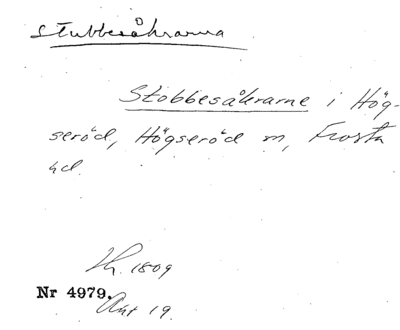 Stubbesåkrarna
Stobbesåkrarne i Hög-
seröd, Högseröd sn, Frosta
hd.
1809
Nr 4979.
Akt 19.